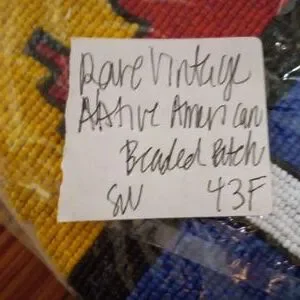 Rare Vintage
Native American
Beaded Patch
SW 43F